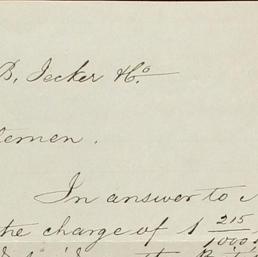 B, Jecker & Co
tlemen.
In answer to
the charge of 1 215/1000